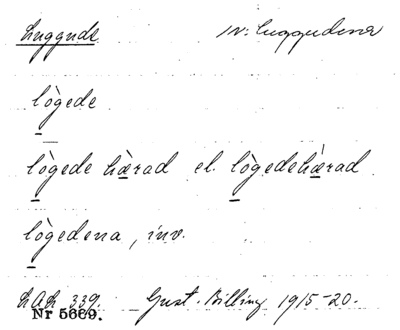 Luggude iv: Luggudena
lògede
lògede hæ̀rad el. lògedehæ̀rad
lògedena, inv.
LAL 339. Gust. Billing 1915-20.
Nr 5669.